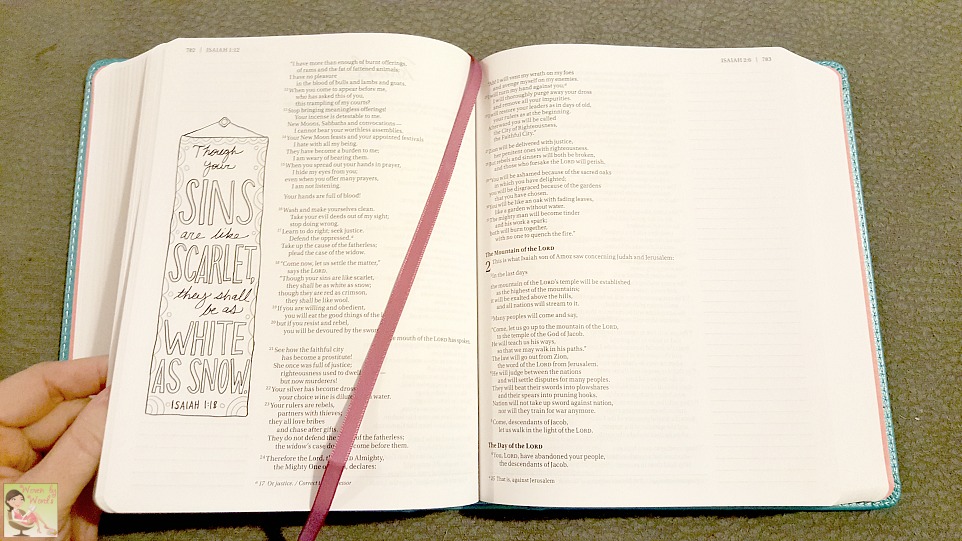 782 | ISAIAH 1:12
Though
your
SINS
are like
SCARLET,
they shall
be as
WHITE
AS SNOW.
ISAIAH 1:18
"I have more than enough of burnt offerings,
of rams and the fat of fattened animals;
I have no pleasure
in the blood of bulls and lambs and goats.
12 When you come to appear before me,
who has asked this of you,
this trampling of my courts?
13 Stop bringing meaningless offerings!
Your incense is detestable to me.
New Moons, Sabbaths and convocations—
I cannot bear your worthless assemblies.
14 Your New Moon feasts and your appointed festivals
I hate with all my being.
They have become a burden to me;
I am weary of bearing them.
15 When you spread out your hands in prayer,
I hide my eyes from you;
even when you offer many prayers,
I am not listening.
Your hands are full of blood!
16 Wash and make yourselves clean.
Take your evil deeds out of my sight;
stop doing wrong.
17 Learn to do right; seek justice.
Defend the oppressed.a
Take up the cause of the fatherless;
plead the case of the widow.
18 "Come now, let us settle the matter,"
says the LORD.
"Though your sins are like scarlet,
they shall be as white as snow;
though they are red as crimson,
they shall be like wool.
19 If you are willing and obedient,
you will eat the good things of the
20 but if you resist and rebel,
you will be devoured by the
mouth of the LORD has spoken.
21 See how the faithful city
has become a prostitute!
She once was full of justice;
righteousness used to dwell
but now murderers!
22 Your silver has become dross,
your choice wine is water.
23 Your rulers are rebels,
partners with thieves;
they all love bribes
and chase after gifts.
They do not defend the of the fatherless;
the widow's case come before them.
24 Therefore the Lord, the Almighty,
the Mighty One declares:
a 17 Or justice. / Correct the
ISAIAH 2:6 | 783
I will vent my wrath on my foes
and avenge myself on my enemies.
will turn my hand against you;
I will thoroughly purge away your dross
and remove all your impurities.
will restore your leaders as in days of old,
your rulers as at the beginning.
Afterward you will be called
the City of Righteousness,
the Faithful City."
will be delivered with justice,
her penitent ones with righteousness.
rebels and sinners will both be broken,
and those who forsake the LORD will perish.
"You will be ashamed because of the sacred oaks
in which you have delighted;
you will be disgraced because of the gardens
that you have chosen.
You will be like an oak with fading leaves,
like a garden without water.
The mighty man will become tinder
and his work a spark;
both will burn together,
with no one to quench the fire."
The Mountain of the LORD
2 This is what Isaiah son of Amoz saw concerning Judah and Jerusalem:
2 In the last days
the mountain of the LORD's temple will be established
as the highest of the mountains;
it will be exalted above the hills,
and all nations will stream to it.
3 Many peoples will come and say,
"Come, let us go up to the mountain of the LORD,
to the temple of the God of Jacob.
He will teach us his ways,
so that we may walk in his paths."
The law will go out from Zion,
the word of the LORD from Jerusalem.
4 He will judge between the nations
and will settle disputes for many peoples.
They will beat their swords into plowshares
and their spears into pruning hooks.
Nation will not take up sword against nation,
nor will they train for war anymore.
5 Come, descendants of Jacob,
let us walk in the light of the LORD.
The Day of the LORD
6 You, LORD, have abandoned your people,
the descendants of Jacob.
25 That is, against Jerusalem
Women by
Words